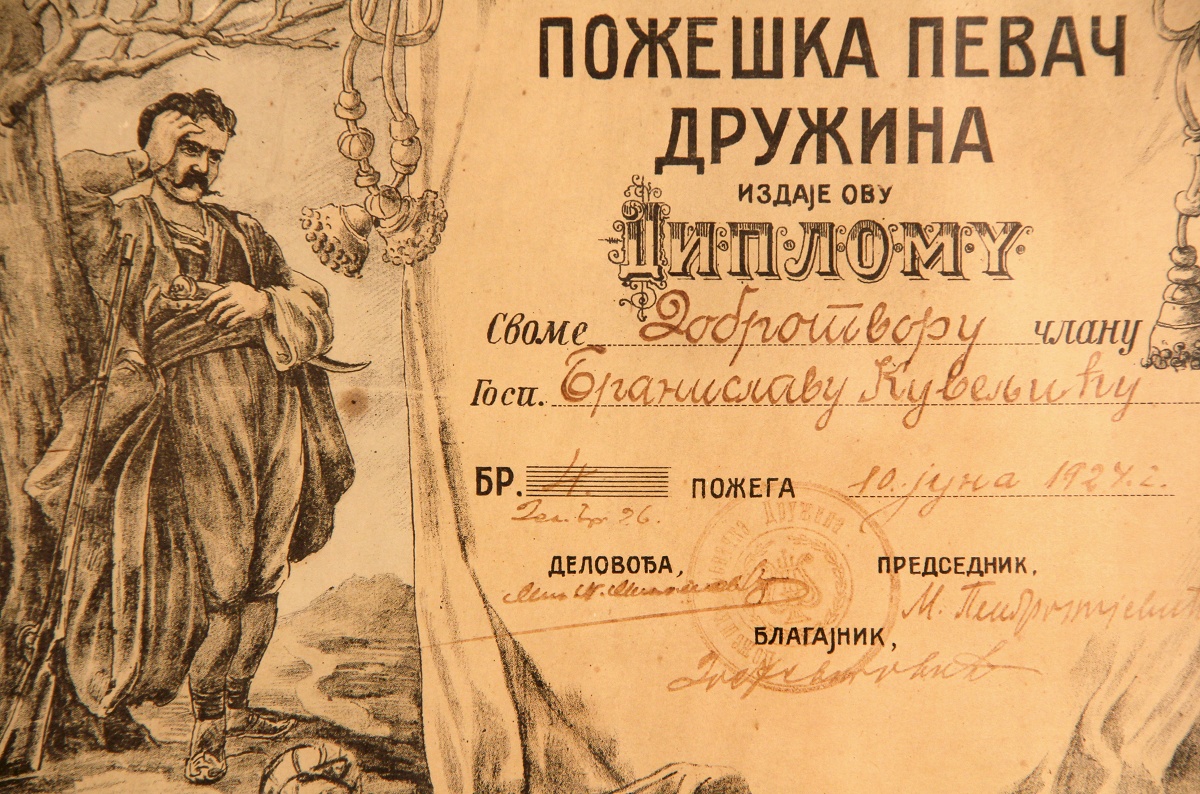 ПОЖЕШКА ПЕВАЧ
ДРУЖИНА
ИЗДАЈЕ ОВУ
ДИПЛОМУ
Своме Добротвору члану
Госп. Браниславу Кувељићу
БР. 4. ПОЖЕГА 10. јуна 1924. г.
ДЕЛОВОЂА, ПРЕДСЕДНИК,
БЛАГАЈНИК,